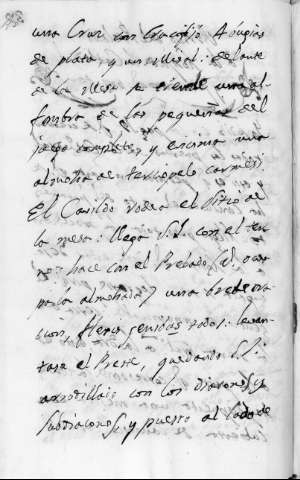 una Cruz con Crucifijo
de plata, y un misal: delante
de la mesa se tiende una al-
fombra de las pequeñas del
juego completo, y encima una
almohada de terciopelo carmesi
El Cavildo rodea el Sitio de
la mesa: llega S.I. con el ter-
no: hace con el Prelado
almohada) una breve ora
cion, todos: levan
tase el Preste, quedando S.I.
arrodillado con los Diaconos, y
Subdiaconos, y puesto al lado de